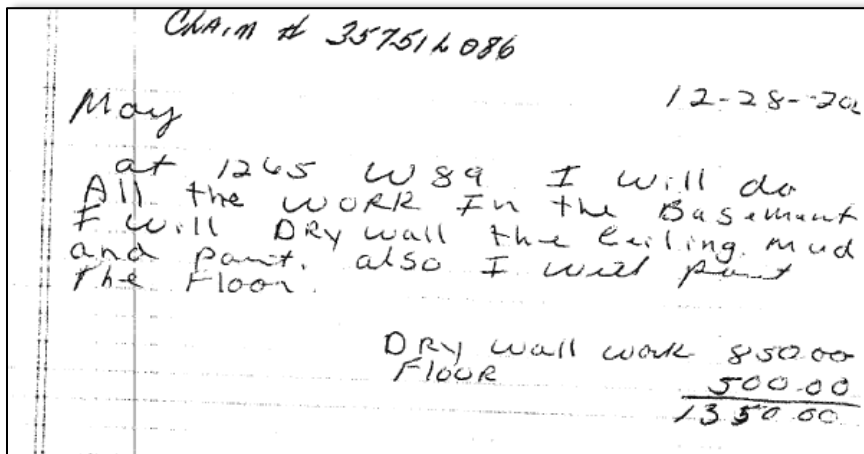 Claim # 35751L086
12-28-20
May
at 1265 W 89 I will do
All the WORK In the Basement
I will DRY wall the Ceiling. mud
and paint. also I will paint
The Floor.
DRY wall work 850.00
FLOOR 500.00
1350.00